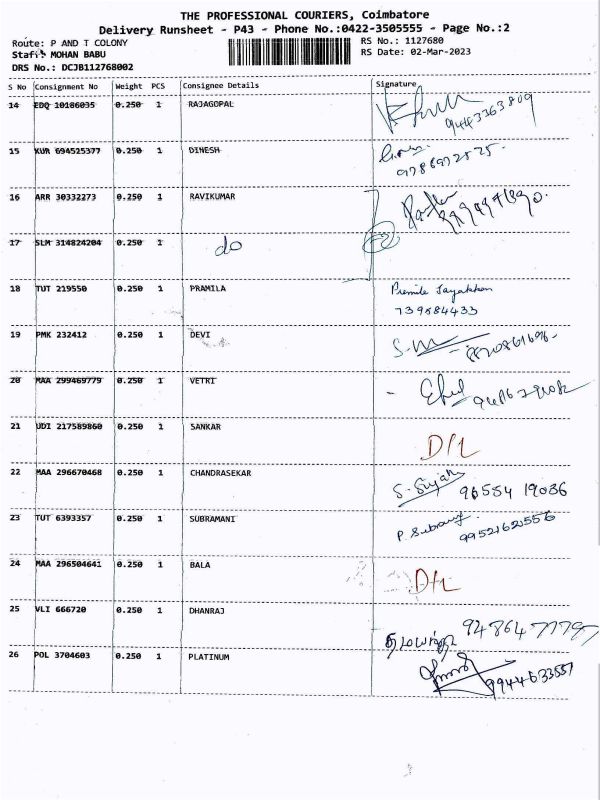 THE PROFESSIONAL COURIERS, Coimbatore
Delivery Runsheet - P43 - Phone No.:0422-3505555 - Page No.:2
Route: P AND T COLONY
RS No.: 1127680
Staff: MOHAN BABU
RS Date: 02-Mar-2023
DRS No.: DCJB112768002
S No Consignment No Weight PCS Consignee Details Signature
14 EDQ 10186035 0.250 1 RAJAGOPAL
9443363809
15 KUR 694525377 0.250 1 DINESH
9786972525.
16 ARR 30332273 0.250 1 RAVIKUMAR
17 SLM 314824204 0.250 1 do
18 TUT 219550 0.250 1 PRAMILA
739684433
19 PMK 232412 0.250 1 DEVI
20 MAA 299469779 0.250 1 VETRI
21 UDI 217589860 0.250 1 SANKAR
D/L
22 MAA 296670468 0.250 1 CHANDRASEKAR
96554 19036
23 TUT 6393357 0.250 1 SUBRAMANI
9952162556
24 MAA 296504641 0.250 1 BALA
D/L
25 VLI 666720 0.250 1 DHANRAJ
26 POL 3704603 0.250 1 PLATINUM
9944633557